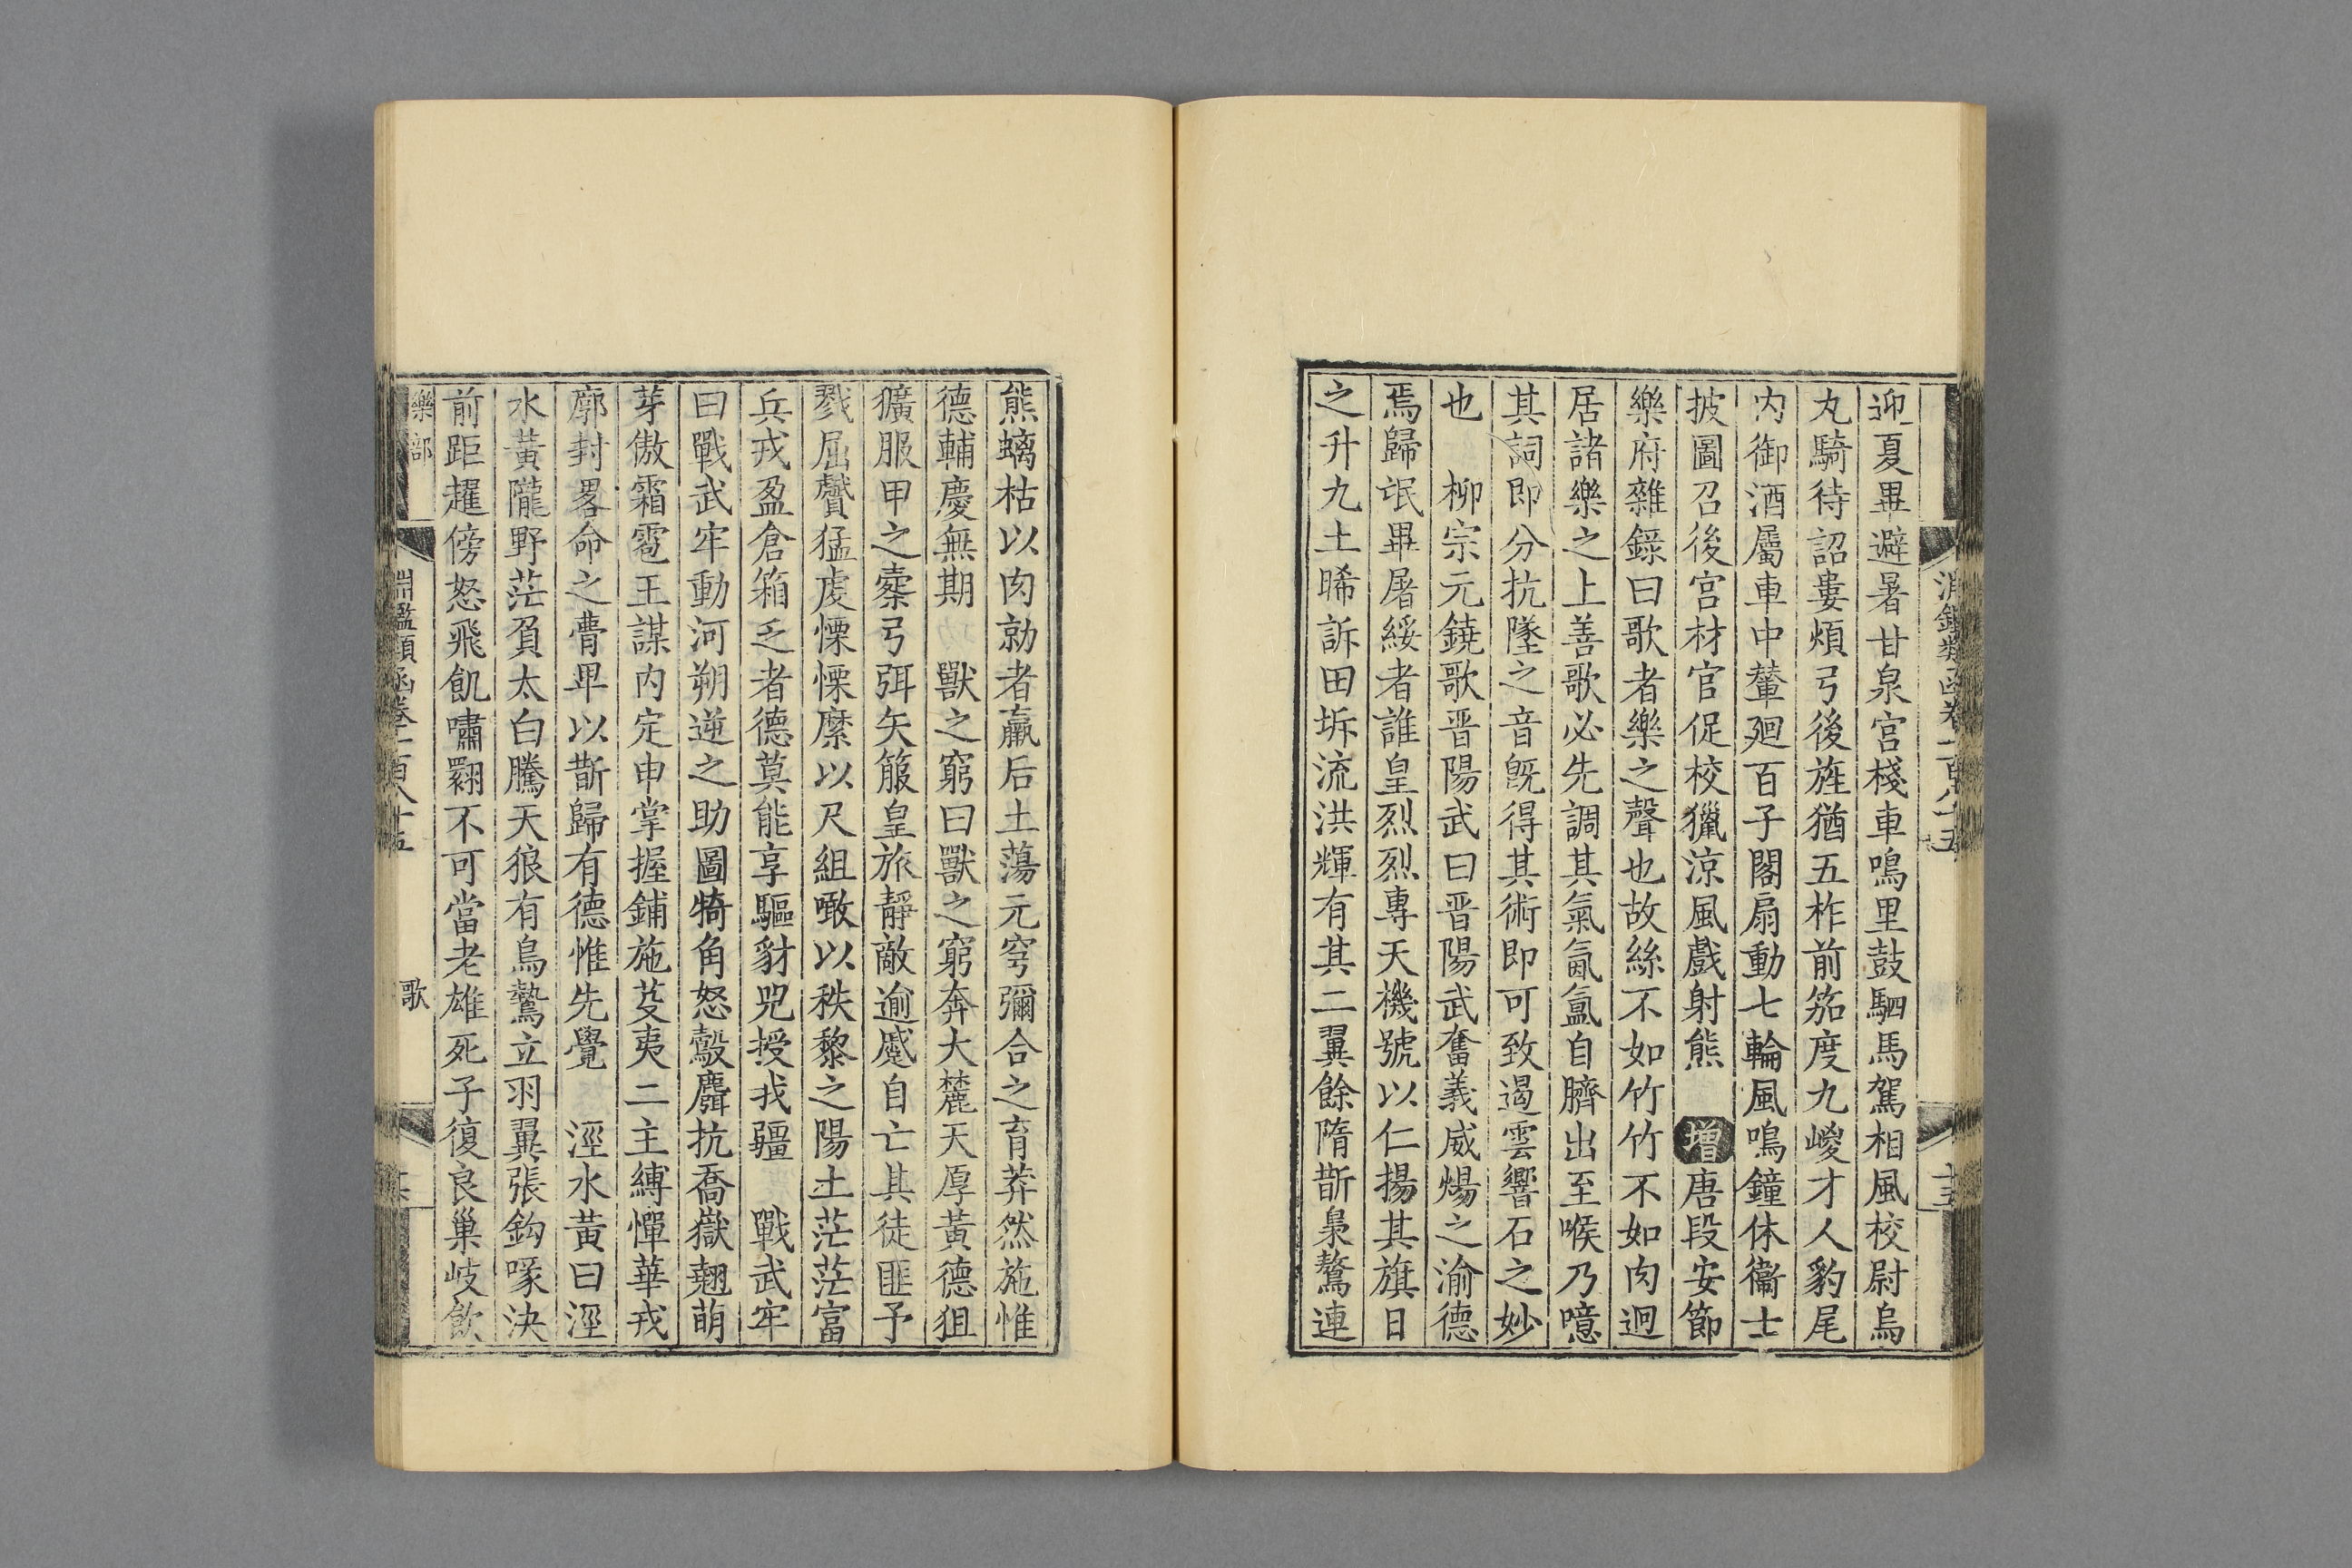 淵鑑類函卷一百八十五
十五
迎夏畢避暑甘泉宮棧車鳴里鼓駟馬駕相風校尉烏
丸騎待詔婁煩弓後旌猶五柞前笳度九嵕才人豹尾
内御酒屬車中輦廻百子閣扇動七輪風鳴鐘休衞士
披圖召後宮材官促校獵涼風戲射熊 增唐段安節
樂府雜錄曰歌者樂之聲也故絲不如竹竹不如肉迥
居諸樂之上善歌必先調其氣氤氳自臍出至喉乃噫
其詞即分抗墜之音旣得其術即可致遏雲響石之妙
也 柳宗元鐃歌晋陽武曰晋陽武奮義威煬之渝德
焉歸氓畢屠綏者誰皇烈烈專天機號以仁揚其旗日
之升九土晞訴田圻流洪輝有其二翼餘隋斮梟驁連
熊螭枯以肉勍者羸后土蕩元穹彌合之育莽然施惟
德輔慶無期 獸之窮曰獸之窮奔大麓天厚黃德狙
獷服甲之櫜弓弭矢箙皇旅靜敵逾蹙自亡其徒匪予
戮屈贙猛虔慄慄縻以尺組噉以秩黎之陽土茫茫富
兵戎盈倉箱乏者德莫能享驅豺兕授我疆 戰武牢
曰戰武牢動河朔逆之助圖犄角怒鷇麛抗喬嶽翹萌
芽傲霜雹王謀内定申掌握鋪施芟夷二主縛憚華戎
廓封畧命之瞢畢以斮歸有德惟先覺 涇水黃曰涇
水黃隴野茫負太白騰天狼有鳥鷙立羽翼張鈎喙決
前距趯傍怒飛飢嘯翾不可當老雄死子復良巢岐飲
樂部
淵鑑類函卷一百八十五
歌